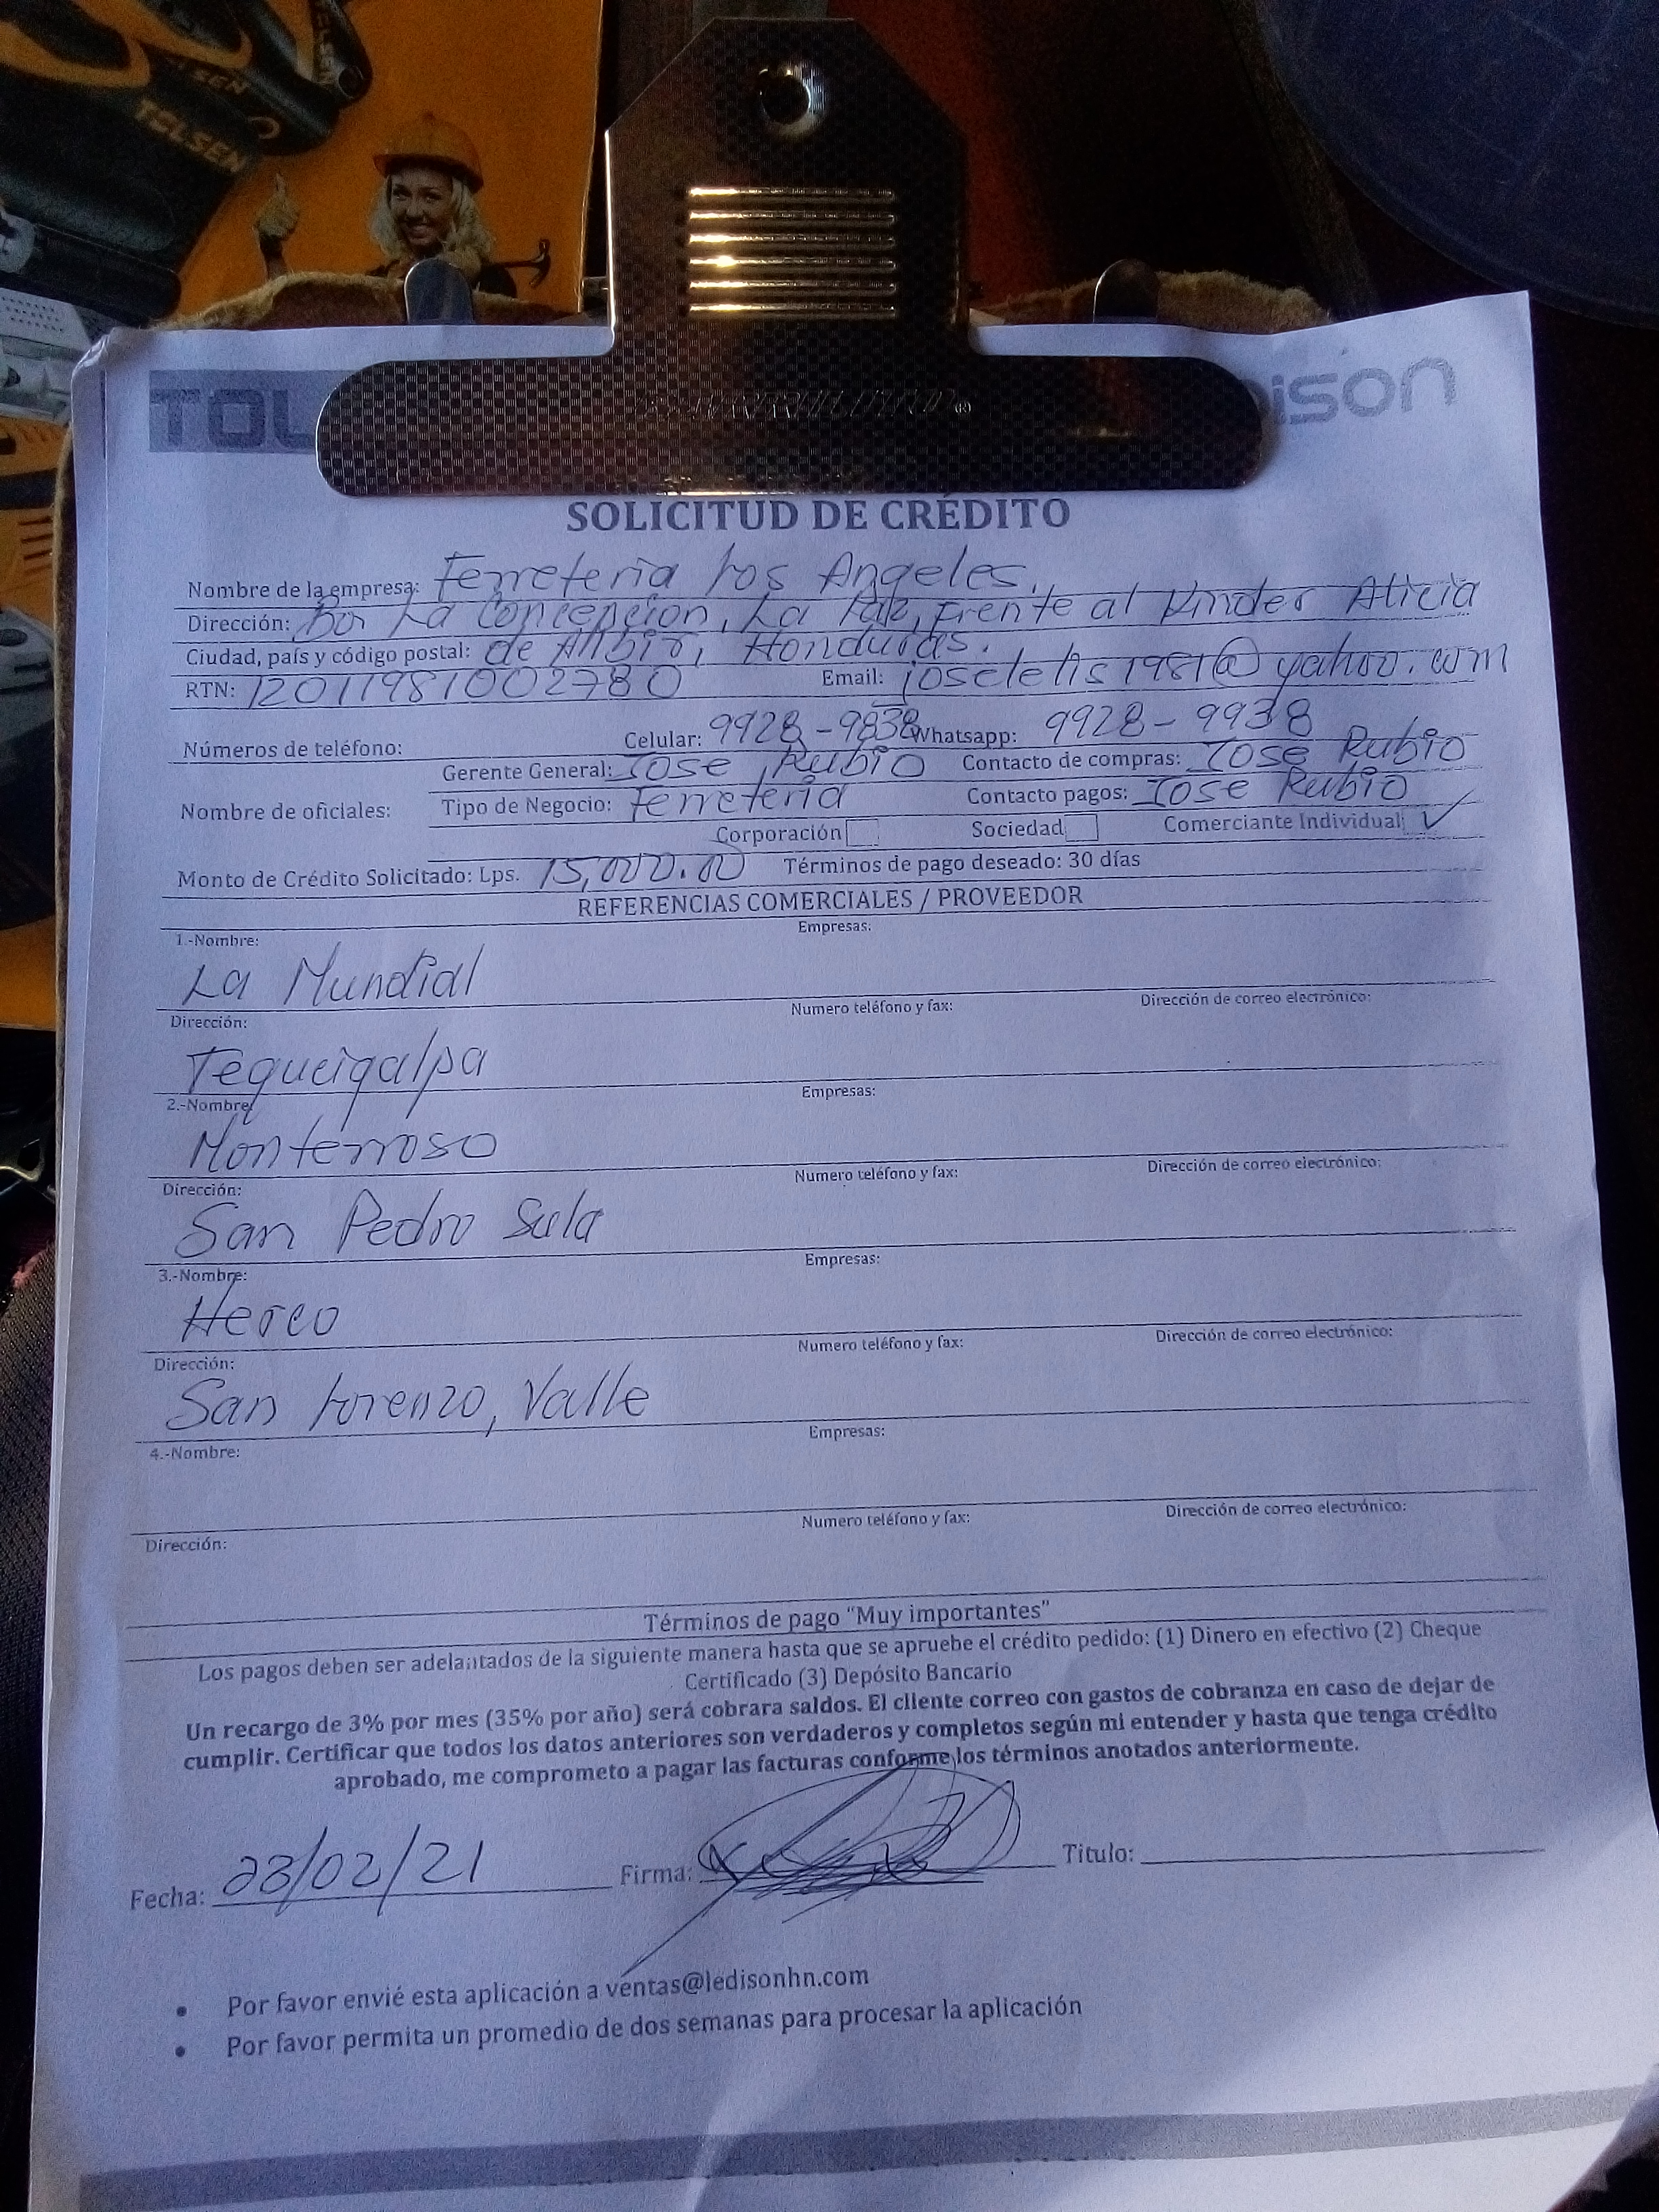 TOLSEN
TOL
ison
SOLICITUD DE CRÉDITO
Nombre de la empresa: Ferreteria Los Angeles.
Dirección: Bo. La Concepcion, La Paz, frente al Kinder Alicia
Ciudad, país y código postal: de Albir, Honduras.
RTN: 12011981002780 Email: joseletis1981@yahoo.com
Números de teléfono: Celular: 9928-9838 Whatsapp: 9928-9938
Gerente General: Jose Rubio Contacto de compras: Jose Rubio
Nombre de oficiales: Tipo de Negocio: Ferreteria Contacto pagos: Jose Rubio
Corporación Sociedad Comerciante Individual ✓
Monto de Crédito Solicitado: Lps. 15,000.00 Términos de pago deseado: 30 días
REFERENCIAS COMERCIALES / PROVEEDOR
1.-Nombre: Empresas:
La Mundial
Dirección: Numero teléfono y fax: Dirección de correo electrónico:
Tegucigalpa
2.-Nombre: Empresas:
Monterroso
Dirección: Numero teléfono y fax: Dirección de correo electrónico:
San Pedro Sula
3.-Nombre: Empresas:
Herco
Dirección: Numero teléfono y fax: Dirección de correo electrónico:
San Lorenzo, Valle
4.-Nombre: Empresas:
Dirección: Numero teléfono y fax: Dirección de correo electrónico:
Términos de pago “Muy importantes”
Los pagos deben ser adelantados de la siguiente manera hasta que se apruebe el crédito pedido: (1) Dinero en efectivo (2) Cheque
Certificado (3) Depósito Bancario
Un recargo de 3% por mes (35% por año) será cobrara saldos. El cliente correo con gastos de cobranza en caso de dejar de
cumplir. Certificar que todos los datos anteriores son verdaderos y completos según mi entender y hasta que tenga crédito
aprobado, me comprometo a pagar las facturas conforme los términos anotados anteriormente.
Fecha: 23/02/21 Firma: Titulo:
• Por favor envié esta aplicación a ventas@ledisonhn.com
• Por favor permita un promedio de dos semanas para procesar la aplicación